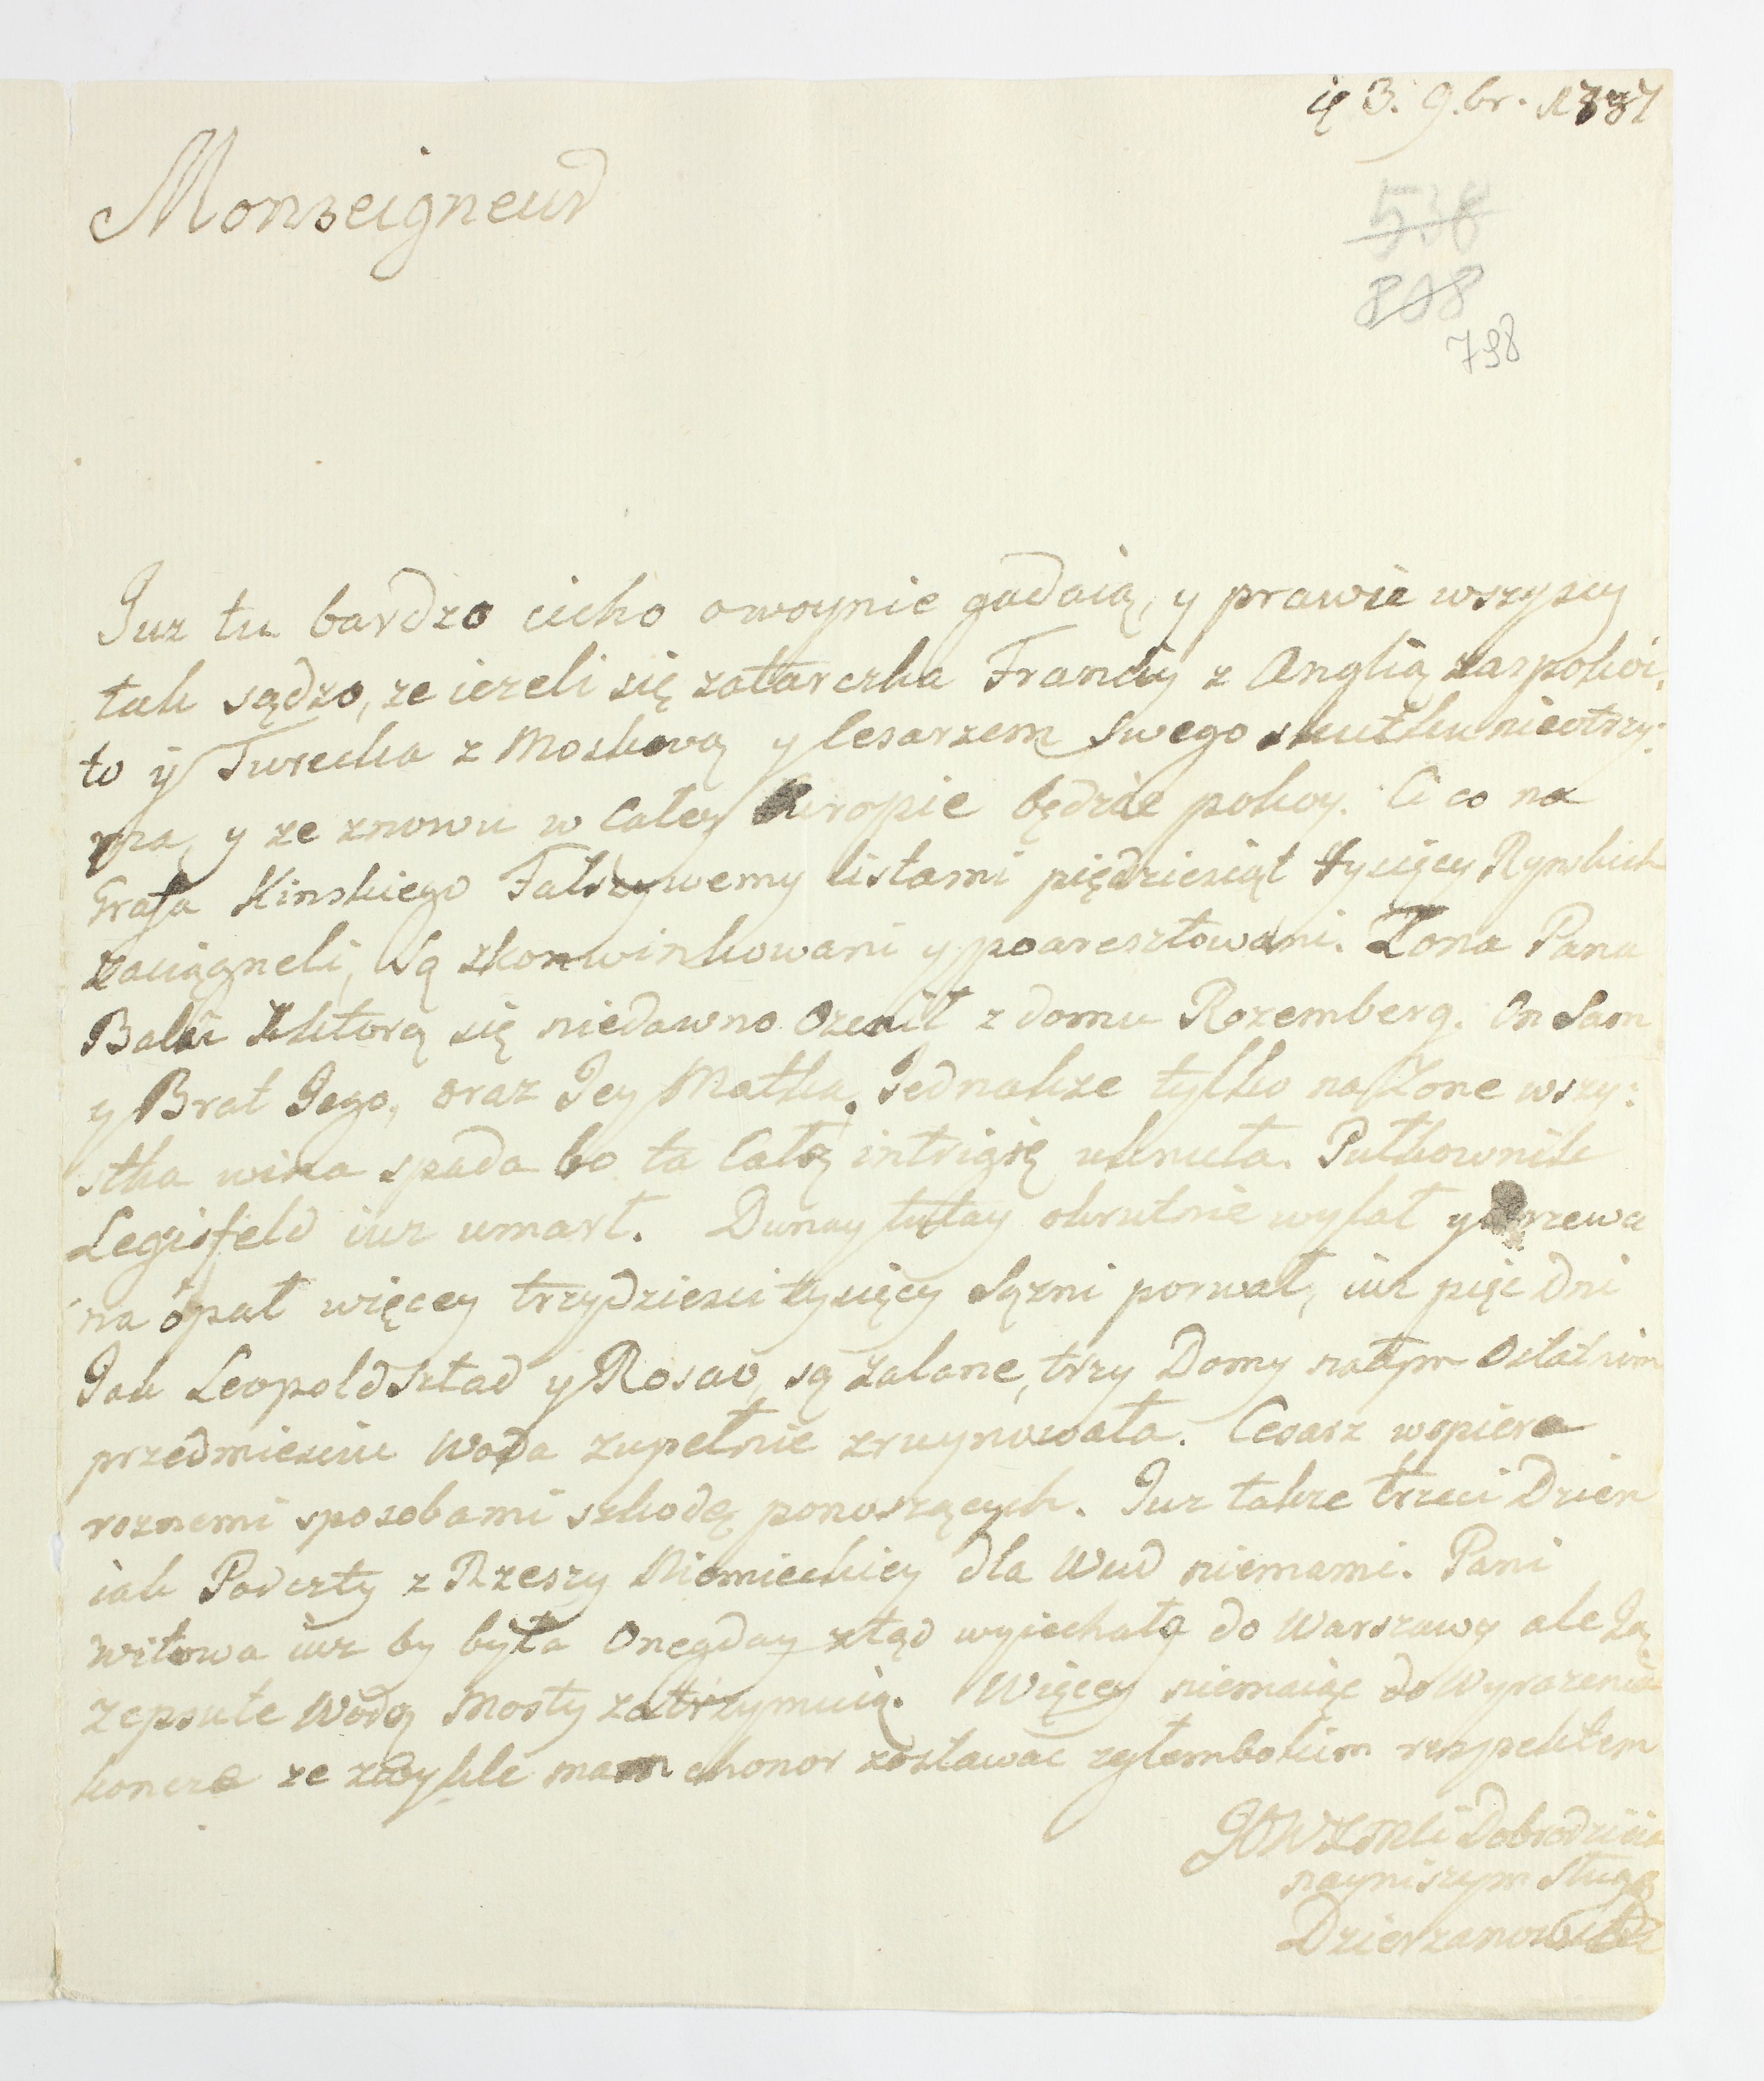 3. 9.br. 1787
Monseigneur
538
808
798
Juz tu bardzo cicho owoynie gadaią, y prawie wszyscy
tak sądzo, ze iezeli się zatarczka Francÿ z Anglią zaspokoi,
to ÿ Turecka z Moskwą y Cesarzem swego skutku nieotrzy:
ma, y ze znowu w Całey Europie będzie pokoy. Ci co na
Grafa Kinskiego Fałszywemy listami piędziesiąt tysięcy Rynskich
zaciągneli, są skonwinkowani y poaresztowani. Zona Pana
Balzi zktorą się niedawno Ozenił z domu Rozemberg. On Sam
y Brat Jego, oraz Jey Matka. Jednakze tylko na Zone wszy:
stka wina spada bo ta Całą intrigię uknuła. Pułkownik
Legisfeld iuz umarł. Dunay tutay okrutnie wylał y drzewa
na opał więcey trzydziesci tysięcy Sązni porwał, iuz pięc dni
Jak Leopoldsztad y Rosau, są zalane, trzy Domy natym Ostatnim
przedmiesciu Woda zupełnie zruynowała. Cesarz wspiera
roznemi sposobami szkodę ponoszących. Juz takze trzeci Dzien
iak Poderty z Rzeszy Niemieckiey dla Wud niemami. Pani
Witowa iuz by była Onegday ztąd wyiechała do Warszawy ale Ją
zepsute Wodą Mosty zatrzymuią. Więcey niemaiąc do Wyrazenia
koncze ze zwykle mam chonor zostawac zgłembokim respektem
JOWXMci Dobrodzieia
nayniszym sługą
Dzierzanowski